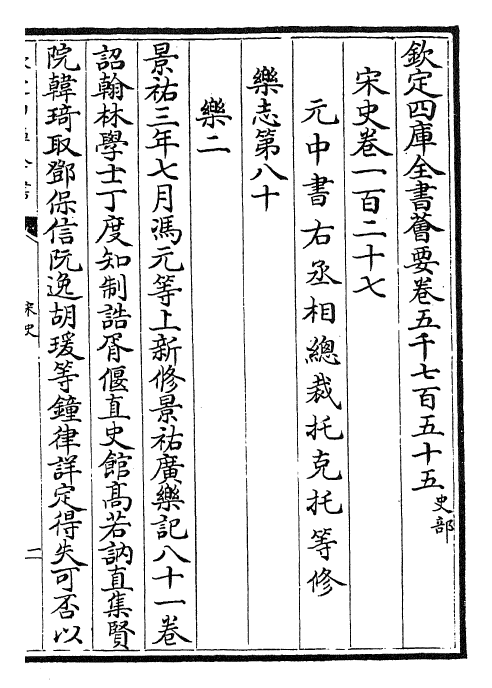 欽定四庫全書薈要卷五千七百五十五史部
宋史卷一百二十七
元中書右丞相總裁托克托等修
樂志第八十
樂二
景祐三年七月馮元等上新修景祐廣樂記八十一卷
詔翰林學士丁度知制誥胥偃直史館髙若訥直集賢
院韓琦取鄧保信阮逸胡瑗等鐘律詳定得失可否以
宋史
二